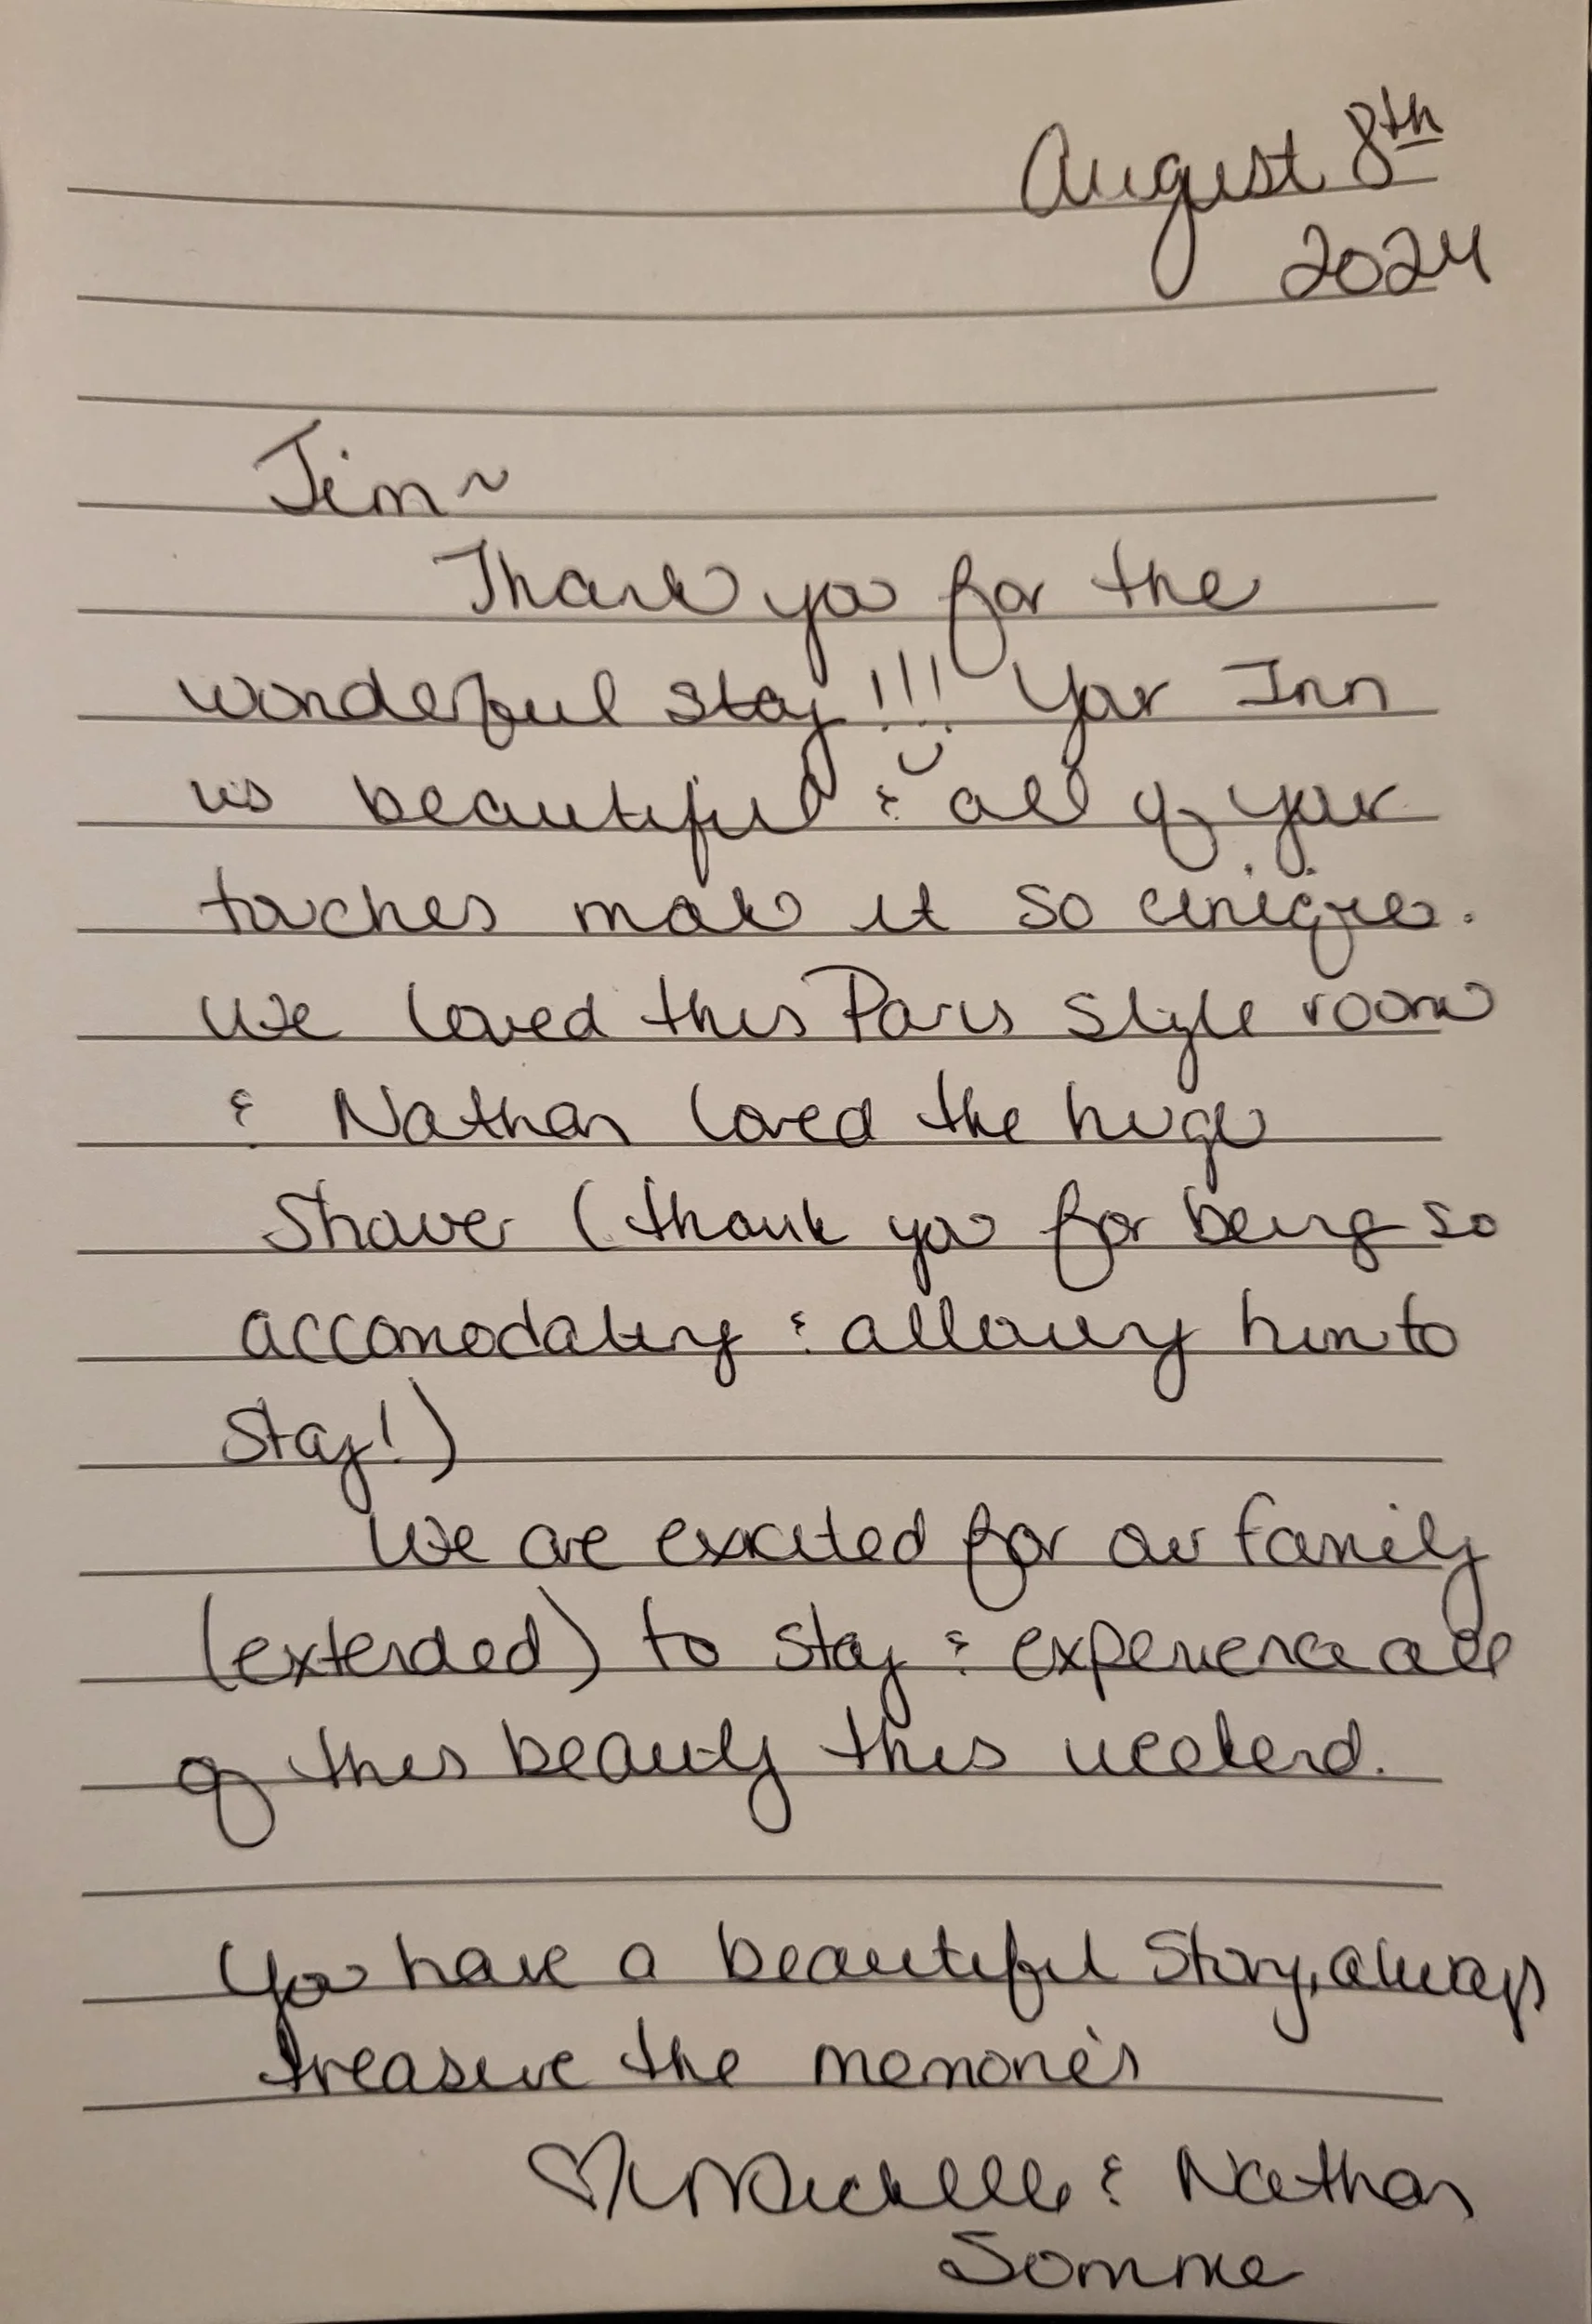 August 8th
2024
Jim ~
Thank you for the
wonderful stay!!! Your Inn
is beautiful & all of your
touches make it so unique.
We loved this Paris style room
& Nathan loved the huge
Shower (thank you for being so
accomodating & allowing him to
stay!)
We are excited for our family
(extended) to stay & experience all
of this beauty this weekend.
You have a beautiful story, always
treasure the memories
♡ Michelle & Nathan
Somme